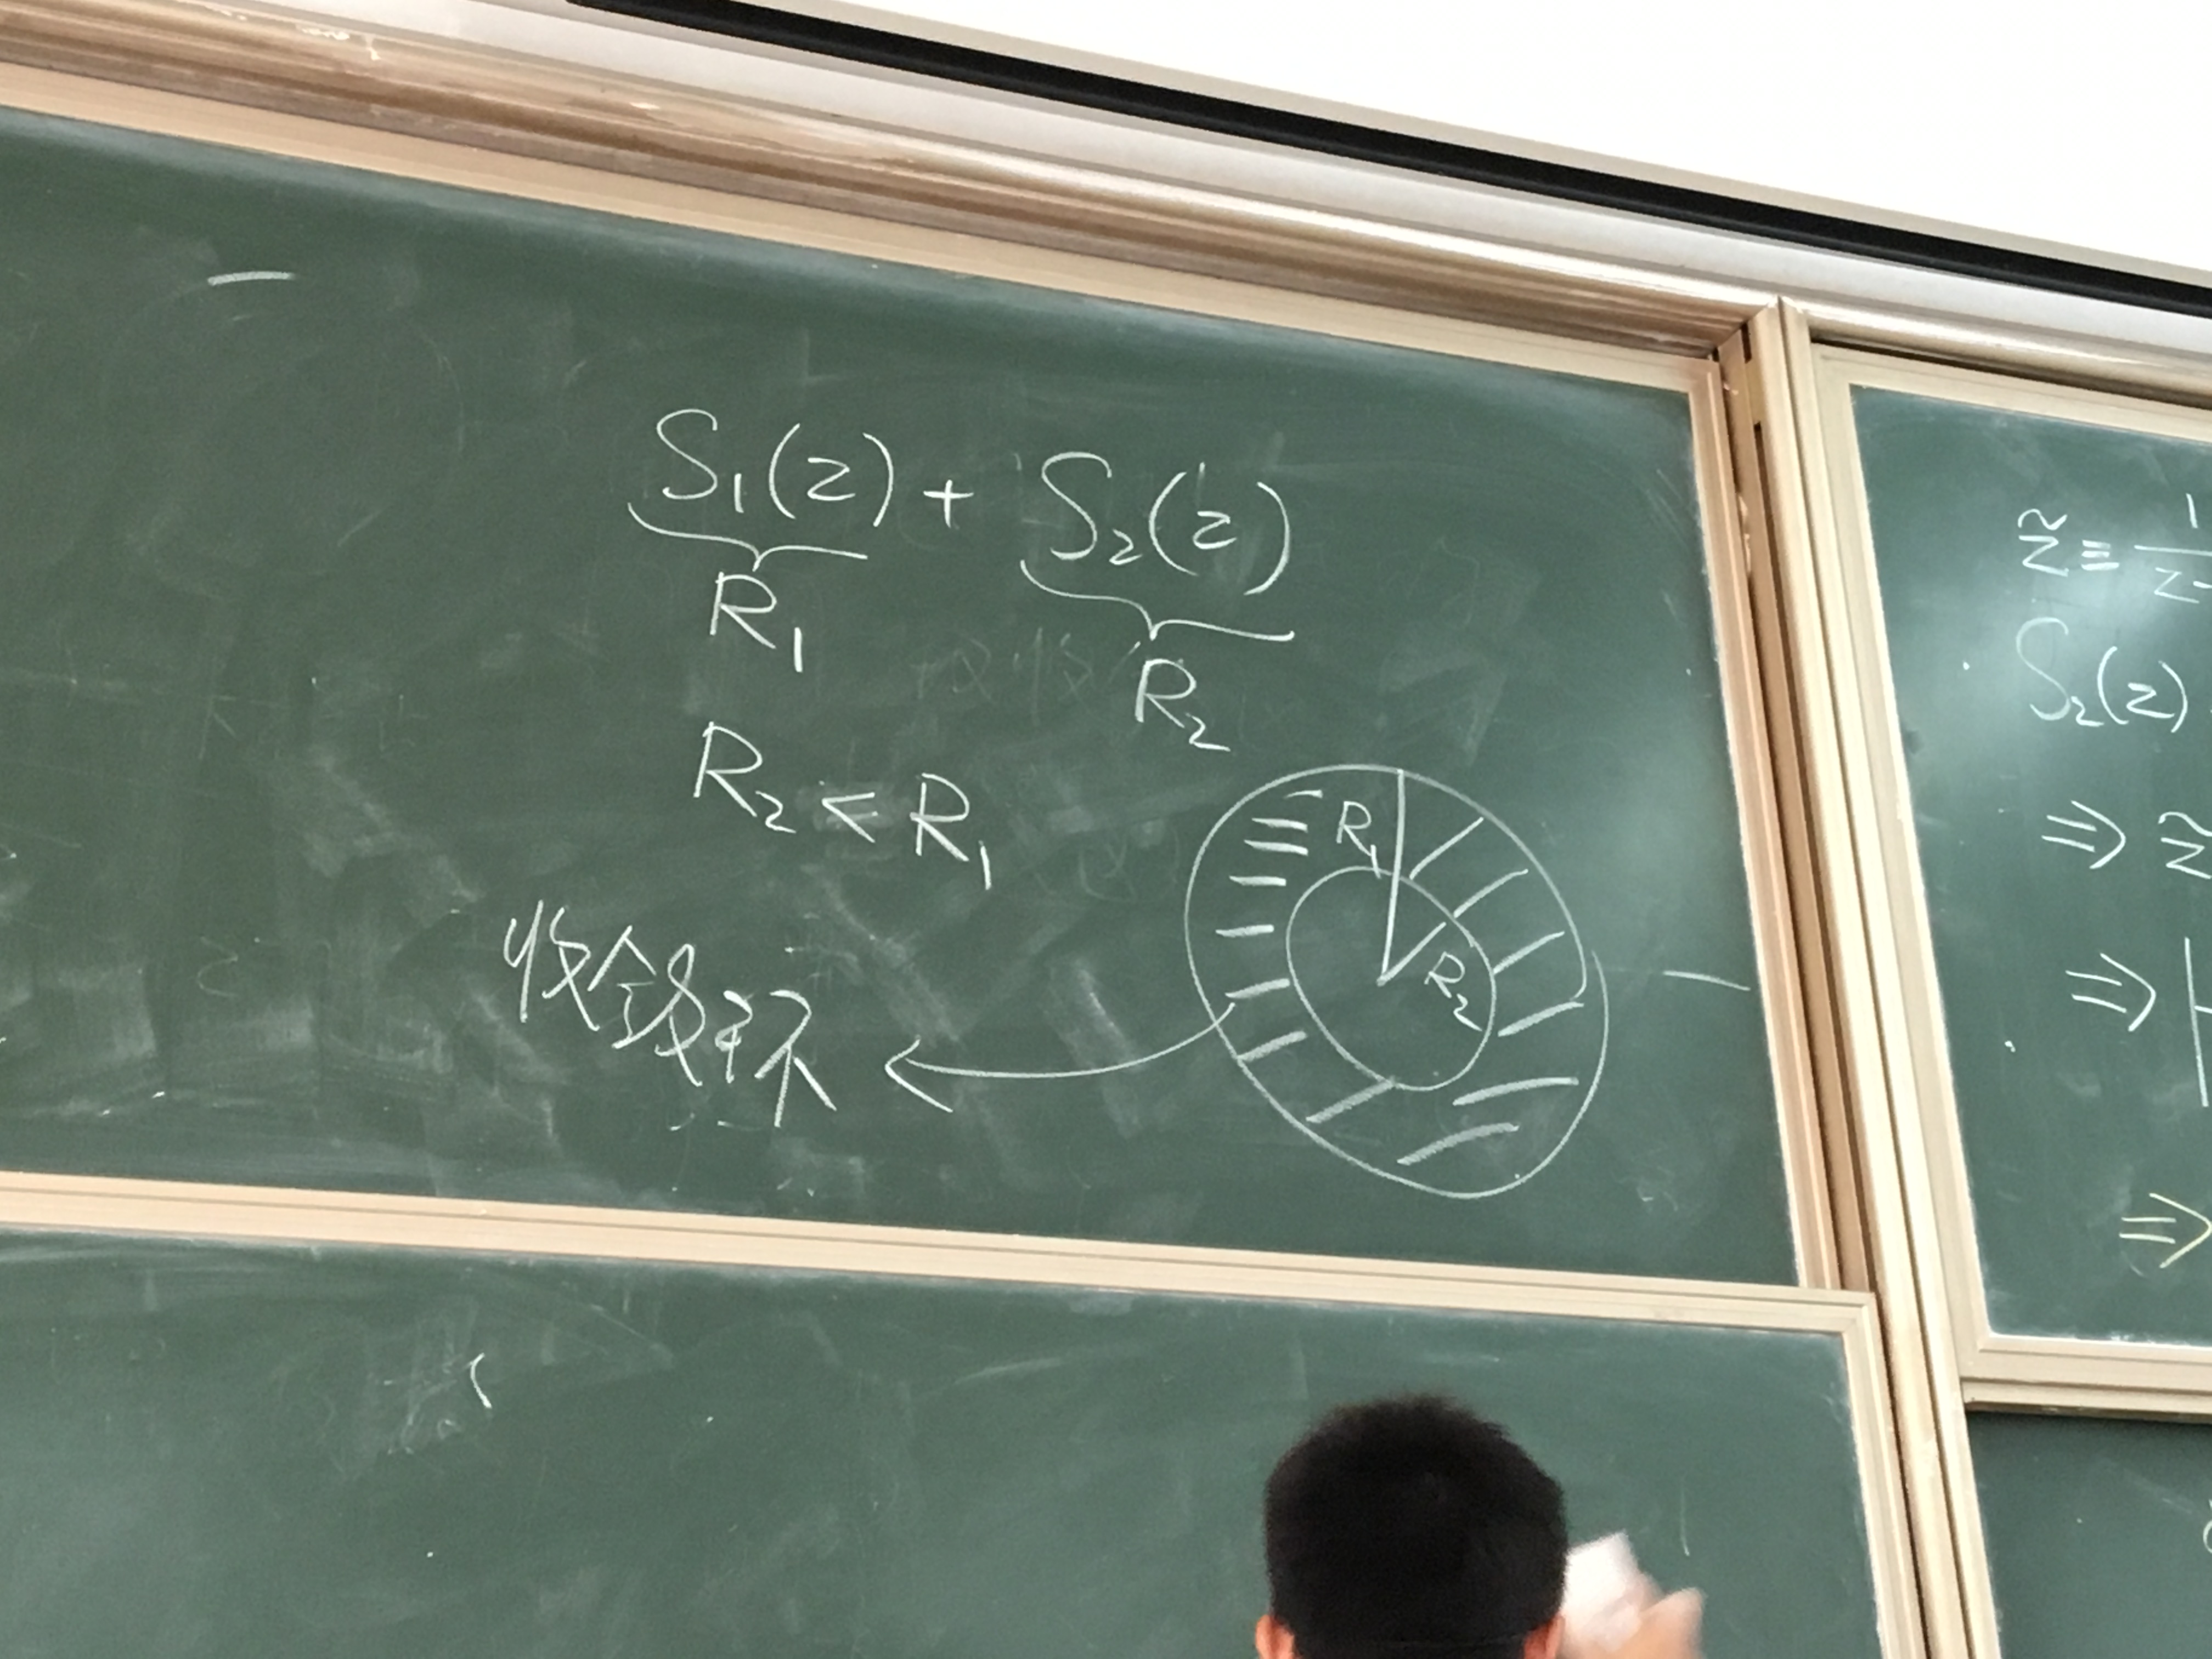 S₁(z) + S₂(z)
R₁ R₂
R₂ < R₁
收敛环
R₁
R₂
z̃ ≡ 1
z-
S₂(z)
⇒ z̃
⇒ |
⇒